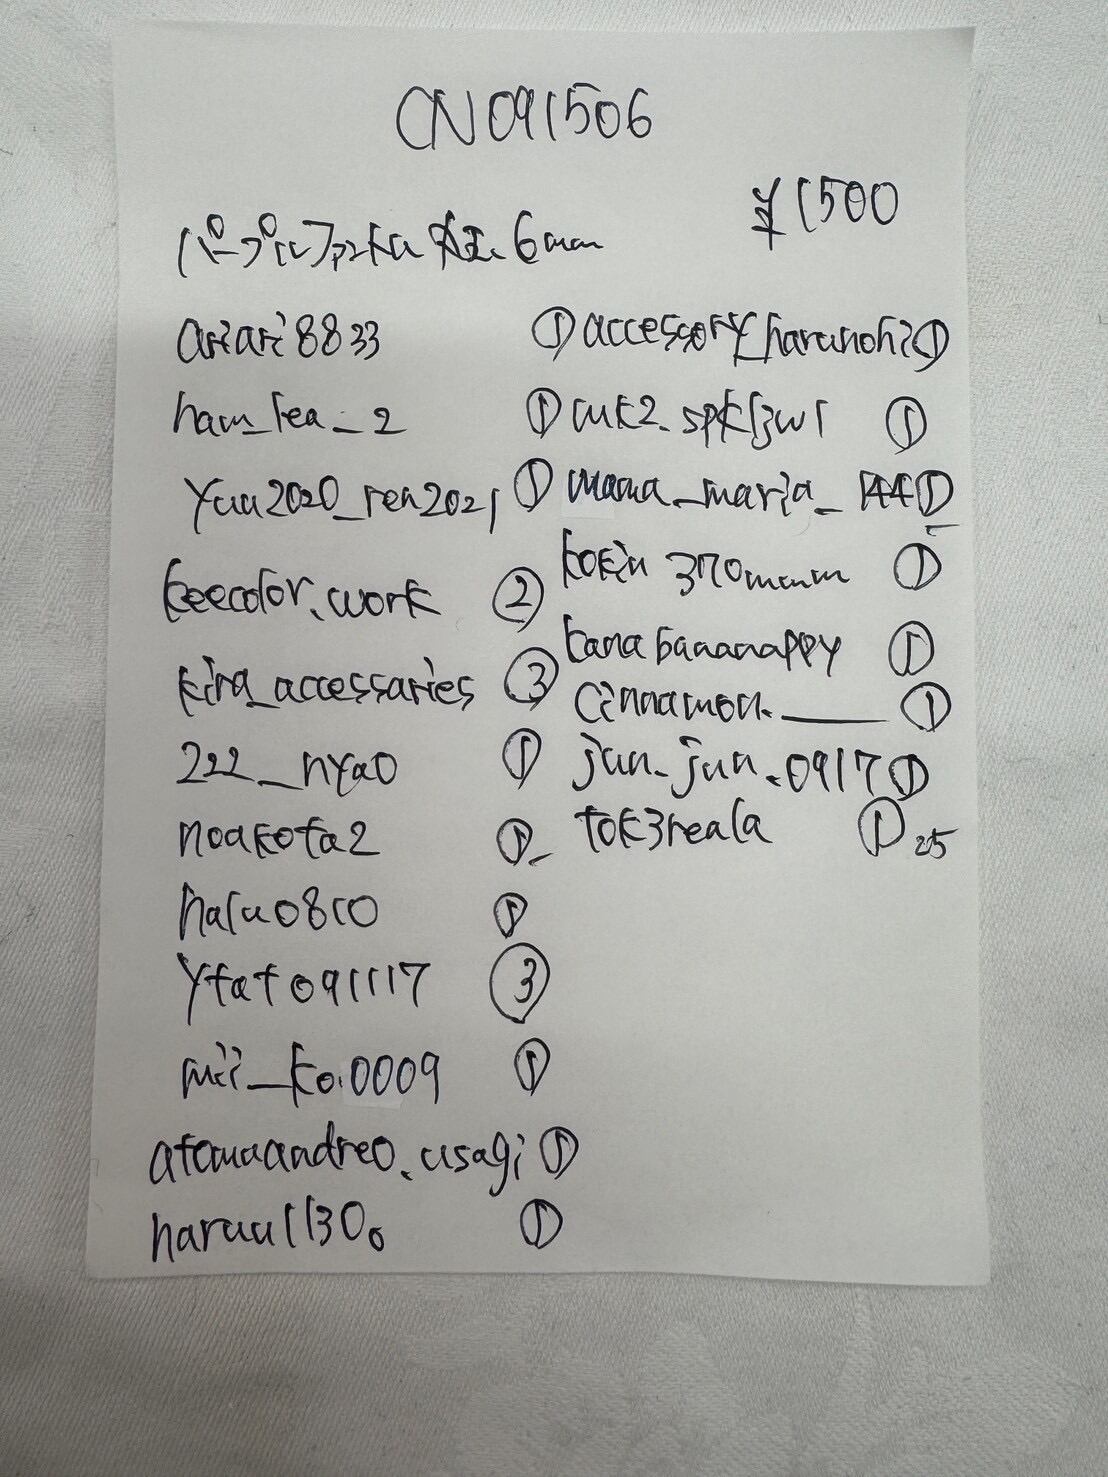 CN091506
¥1500
パープルファントム 6mm
ariari8833 ①
ham_lea_2 ①
yuu2020_ren2021 ①
keecolor.work ②
kira_accessaries ③
222_nyao ①
noakota2 ①
halu0810 ①
ytat091117 ③
mii_ko.0009 ①
atomuandreo.usagi ①
haruu1130. ①
accessory_harunohi ①
mk2.spkl3w1 ①
mama_maria_144 ①
tokin370mmm ①
kanabananappy ①
cinnamon.______ ①
jun.jun.0917 ①
tok3reala ① 25